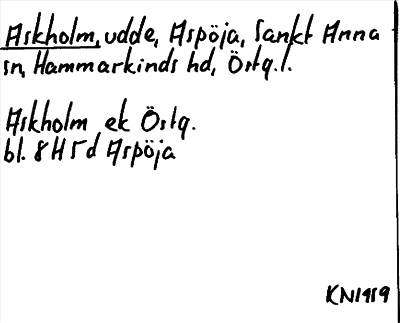 Askholm, udde, Aspöja, Sankt Anna
sn, Hammarkinds hd, Östg. l.
Askholm ek Östg.
bl. 8H5d Aspöja